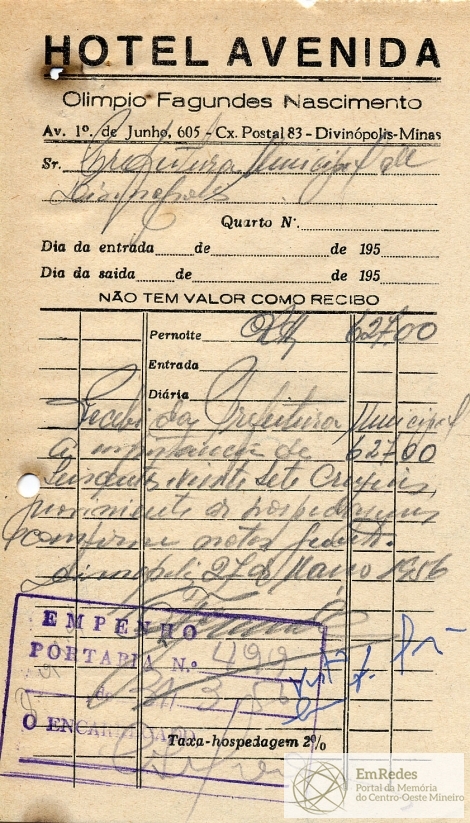 HOTEL AVENIDA
Olimpio Fagundes Nascimento
Av. 1º. de Junho, 605 - Cx. Postal 83 - Divinópolis-Minas
Sr. Prefeitura Municipal de
Divinopolis
Quarto Nº.
Dia da entrada de de 195
Dia da saída de de 195
NÃO TEM VALOR COMO RECIBO
Pernoite 627,00
Entrada
Diária
Recebi da Prefeitura Municipal
a importancia de 627,00
Seiscentos e vinte sete Cruzeiros,
proveniente de hospedagens
conforme notas
Divinopolis 27 de Março 1956
EMPENHO
PORTARIA N.º 499
3 56
O ENCARREGADO
Taxa-hospedagem 2%
EmRedes
Portal da Memória
do Centro-Oeste Mineiro